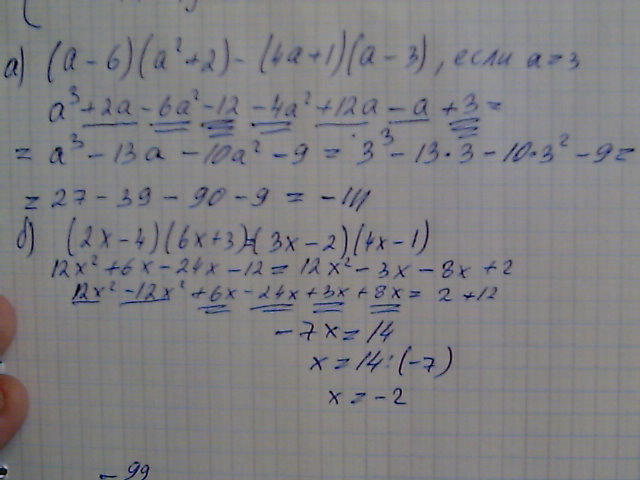 а) (a - 6)(a² + 2) - (4a + 1)(a - 3), если a = 3
a³ + 2a - 6a² - 12 - 4a² + 12a - a + 3 =
= a³ - 13a - 10a² - 9 = 3³ - 13 · 3 - 10 · 3² - 9 =
= 27 - 39 - 90 - 9 = -111
б) (2x - 4)(6x + 3) = (3x - 2)(4x - 1)
12x² + 6x - 24x - 12 = 12x² - 3x - 8x + 2
12x² - 12x² + 6x - 24x + 3x + 8x = 2 + 12
-7x = 14
x = 14 : (-7)
x = -2
- 99